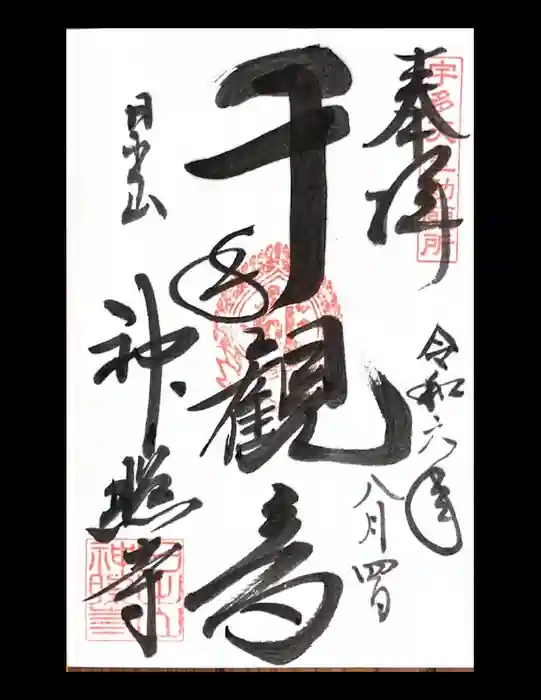 奉拝
宇多天皇勅願所
令和六年
八月四日
千手観音
日出山
神照寺